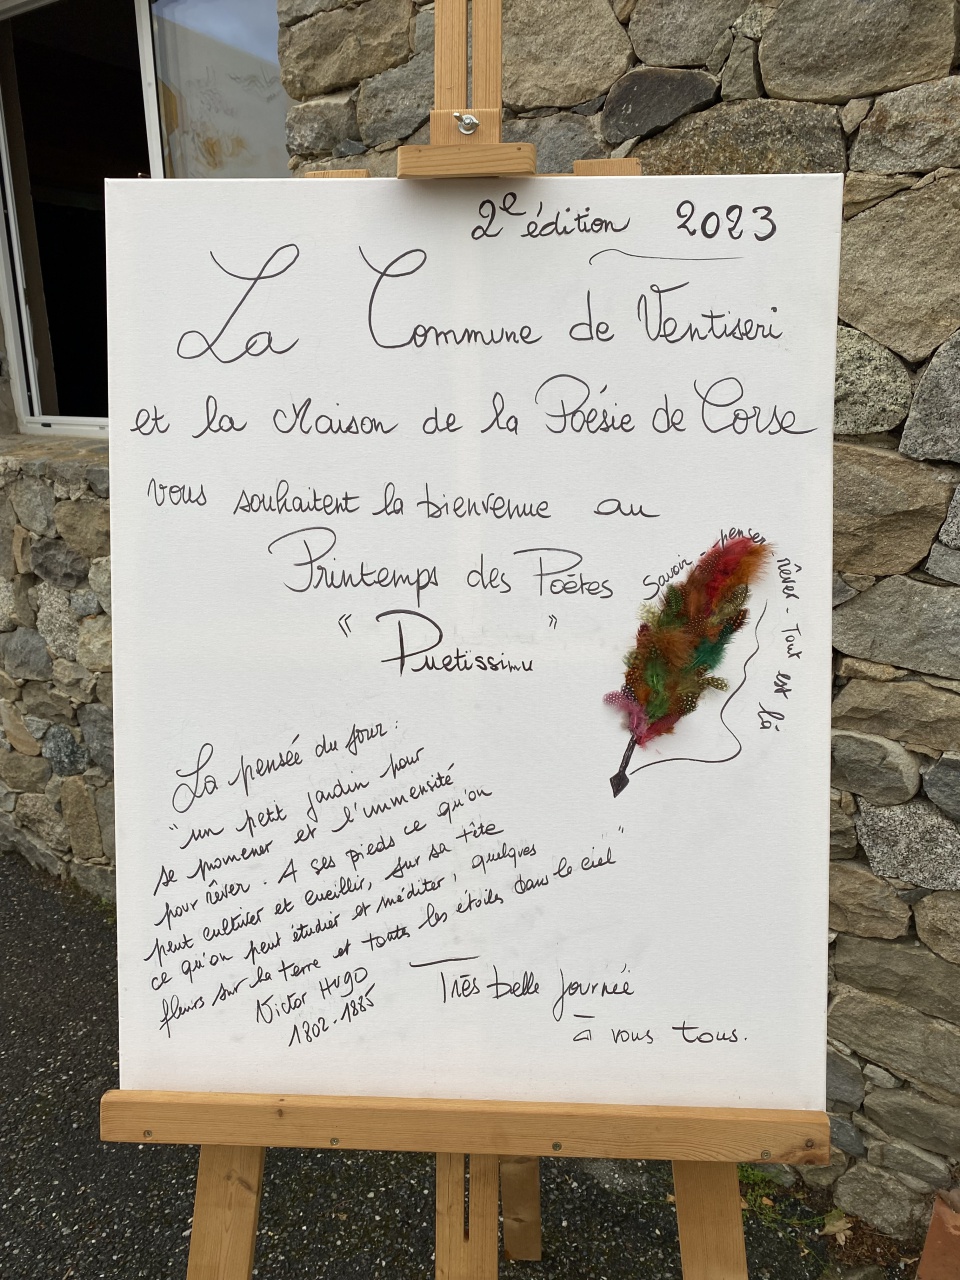 2e édition 2023
La Commune de Ventiseri
et la Maison de la Poésie de Corse
vous souhaitent la bienvenue au
Printemps des Poètes
" Puetissimu "
Savoir, penser, rêver. Tout est là
La pensée du jour :
"un petit jardin pour
se promener et l'immensité
pour rêver. A ses pieds ce qu'on
peut cultiver et cueillir, sur sa tête
ce qu'on peut étudier et méditer, quelques
fleurs sur la terre et toutes les étoiles dans le ciel"
Victor HUGO
1802-1885
Très belle Journée
à vous tous.